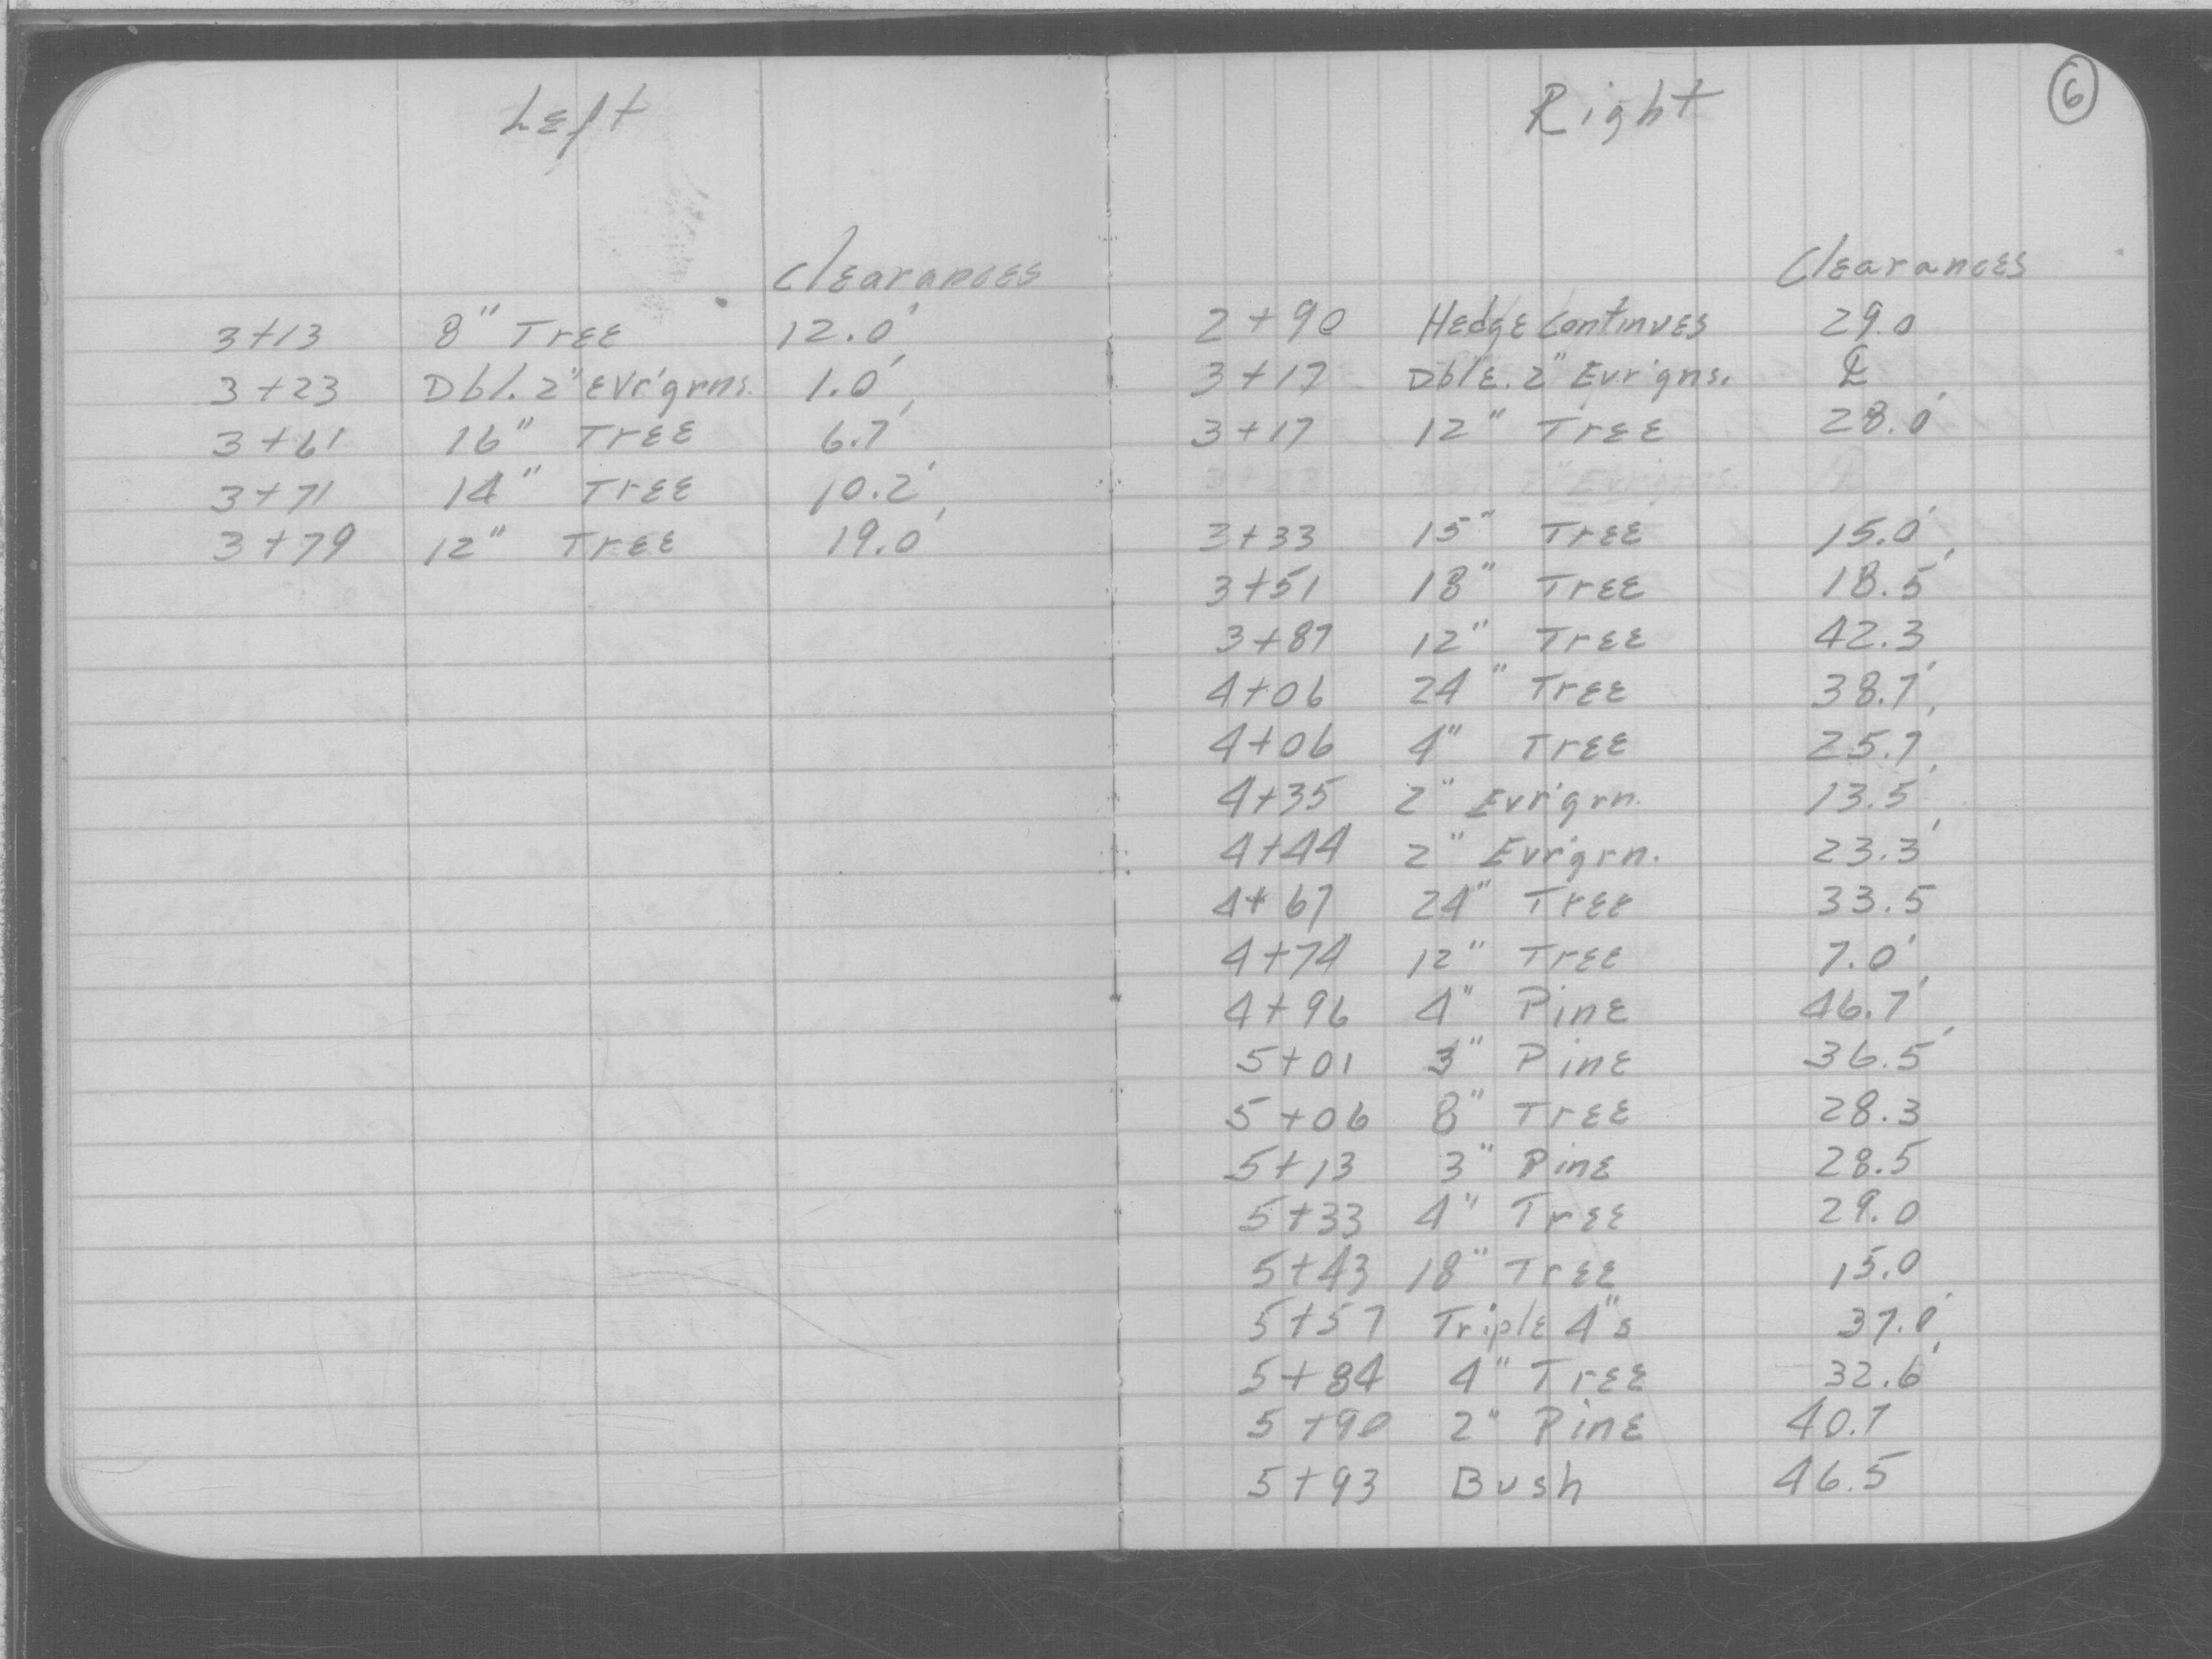 Left
Clearances
3+13 8" Tree 12.0'
3+23 Dbl. 2" Evr'grns. 1.0'
3+61 16" Tree 6.7'
3+71 14" Tree 10.2'
3+79 12" Tree 19.0'
Right
6
Clearances
2+90 Hedge Continues 29.0
3+17 Dble. 2" Evr'gns. ℄
3+17 12" Tree 28.0'
3+33 15" Tree 15.0'
3+51 18" Tree 18.5'
3+87 12" Tree 42.3
4+06 24" Tree 38.7'
4+06 4" Tree 25.7'
4+35 2" Evr'grn. 13.5'
4+44 2" Evr'grn. 23.3'
4+67 24" Tree 33.5
4+74 12" Tree 7.0'
4+96 4" Pine 46.7'
5+01 3" Pine 36.5'
5+06 8" Tree 28.3
5+13 3" Pine 28.5
5+33 4" Tree 29.0
5+43 18" Tree 15.0
5+57 Triple 4"s 37.0'
5+84 4" Tree 32.6'
5+90 2" Pine 40.7
5+93 Bush 46.5